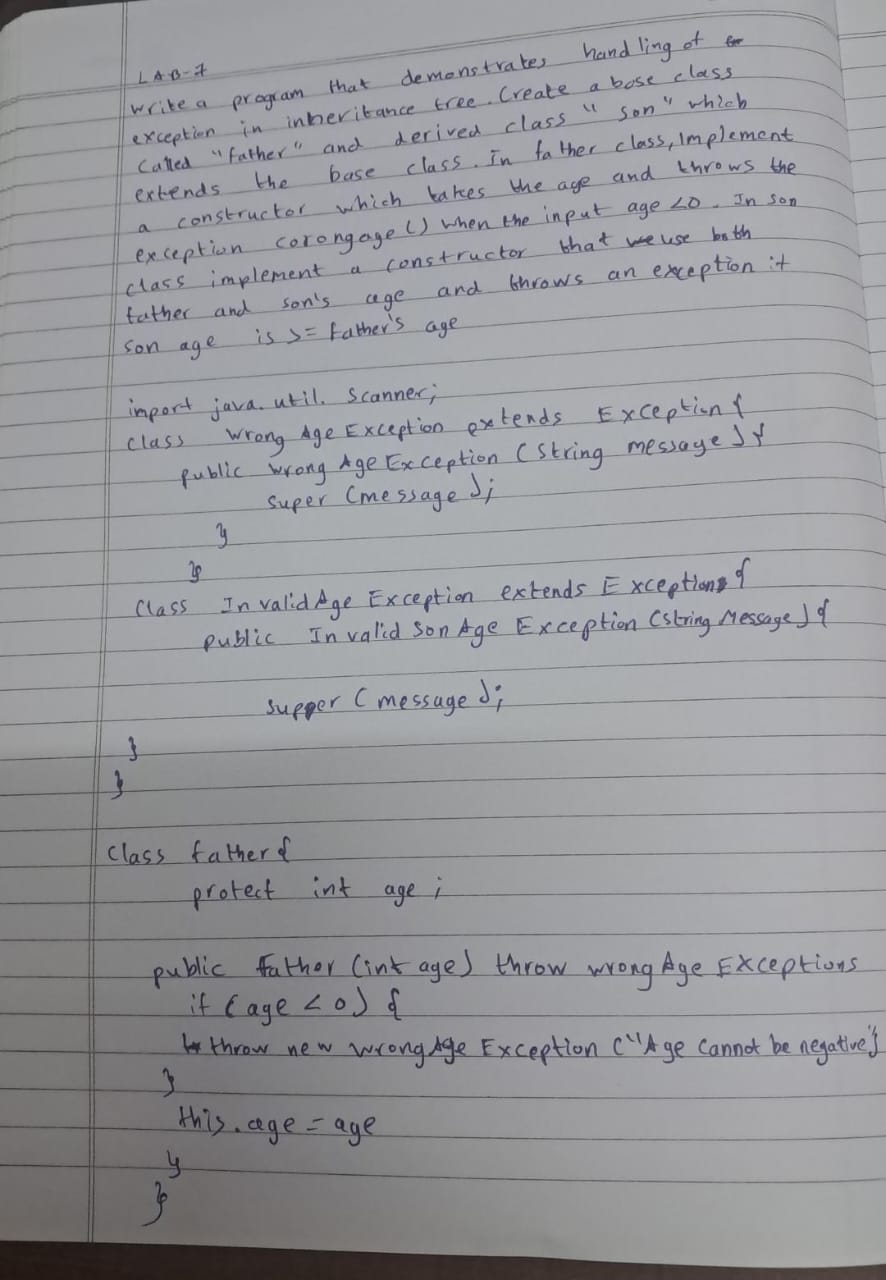 LAB-7
write a program that demonstrates handling of
exception in inheritance tree. Create a base class
called "father" and derived class "son" which
extends the base class. In father class, Implement
a constructor which takes the age and throws the
exception corongage() when the input age <0. In son
class implement a constructor that we use both
father and son's age and throws an exception if
son age is >= father's age
import java.util.Scanner;
class wrong Age Exception extends Exception{
public wrong Age Exception (String message){
super (message);
}
}
Class InvalidAge Exception extends Exception{
public Invalid Son Age Exception (string Message){
supper (message);
}
}
Class father{
protect int age;
public father (int age) throw wrong Age Exceptions
if (age < 0) {
throw new wrongAge Exception ("Age cannot be negative")
}
this.age = age
}
}